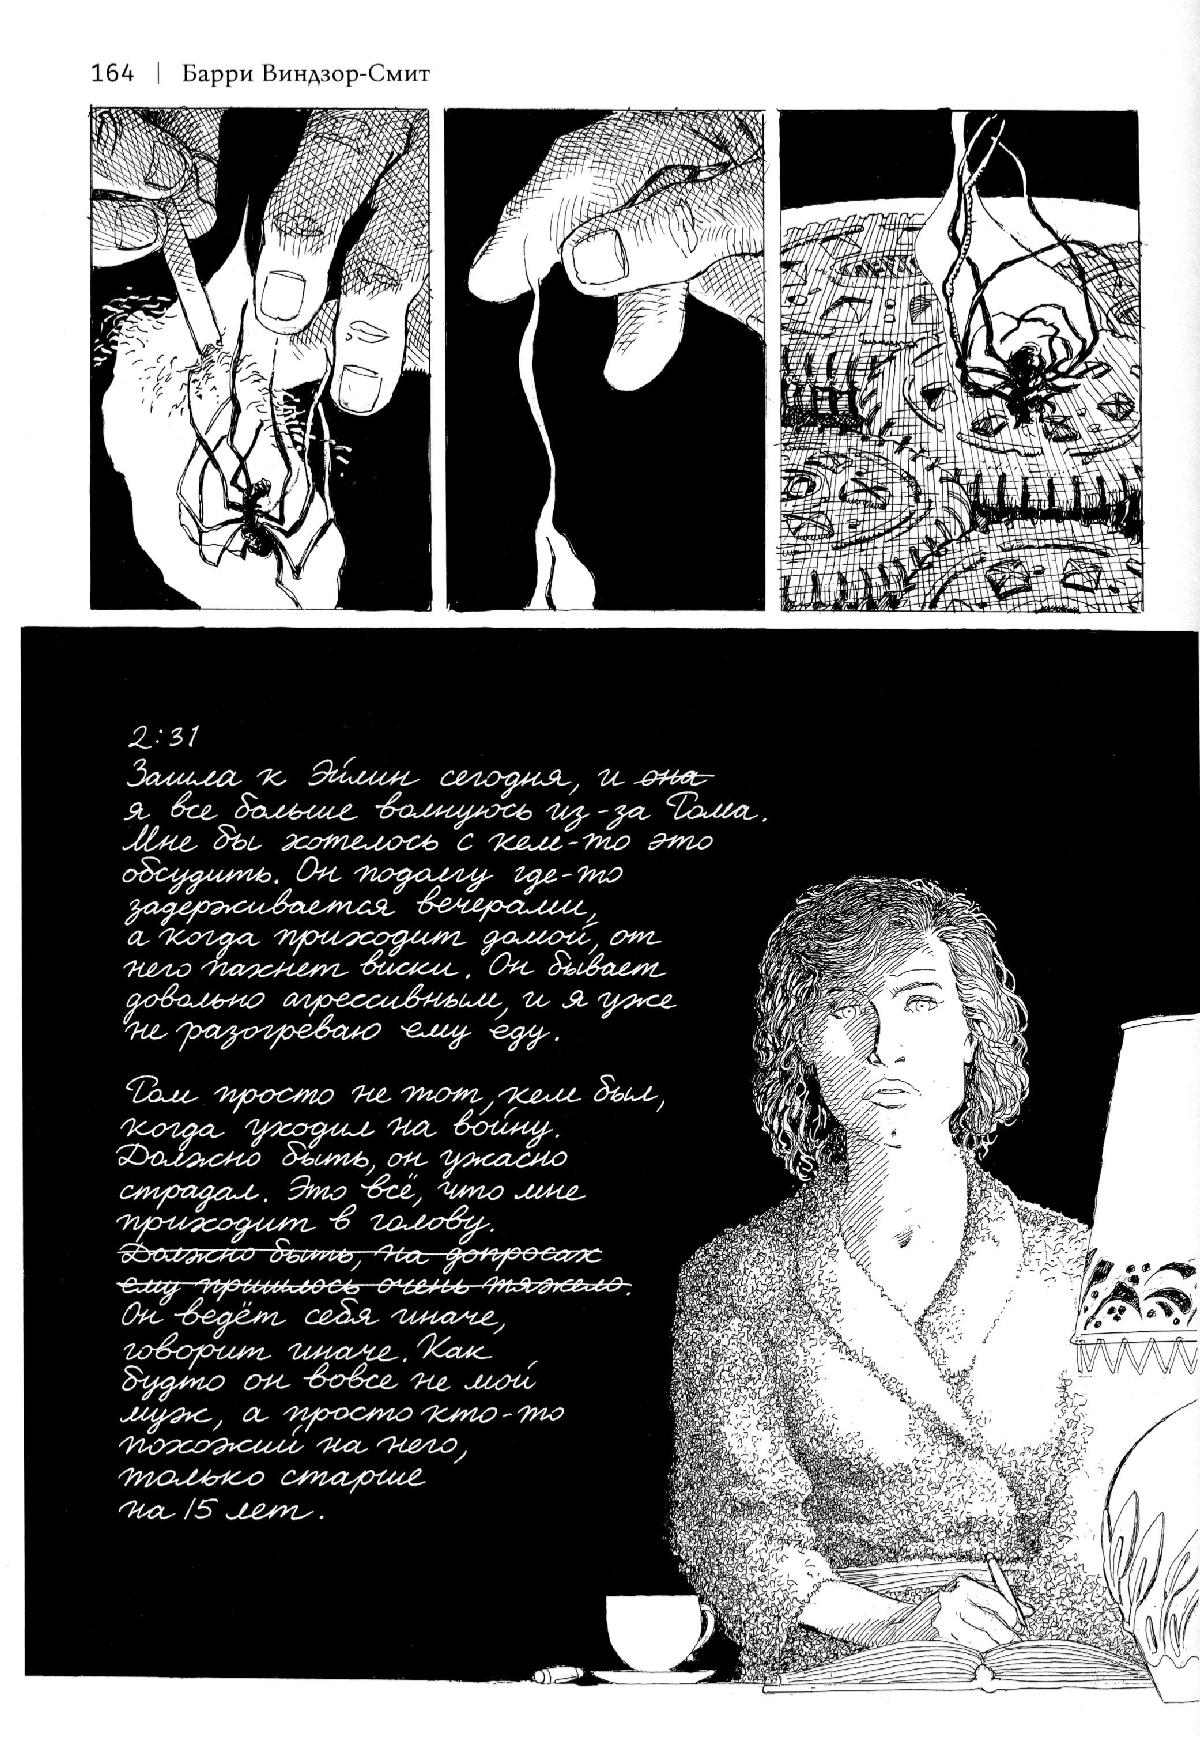 164 | Барри Виндзор-Смит
2:31
Зашла к Эйлин сегодня, и она
я все больше волнуюсь из-за Тома.
Мне бы хотелось с кем-то это
обсудить. Он подолгу где-то
задерживается вечерами,
а когда приходит домой, от
него пахнет виски. Он бывает
довольно агрессивным, и я уже
не разогреваю ему еду.
Том просто не тот, кем был,
когда уходил на войну.
Должно быть, он ужасно
страдал. Это всё, что мне
приходит в голову.
Должно быть, на допросах
ему пришлось очень тяжело.
Он ведёт себя иначе,
говорит иначе. Как
будто он вовсе не мой
муж, а просто кто-то
похожий на него,
только старше
на 15 лет.